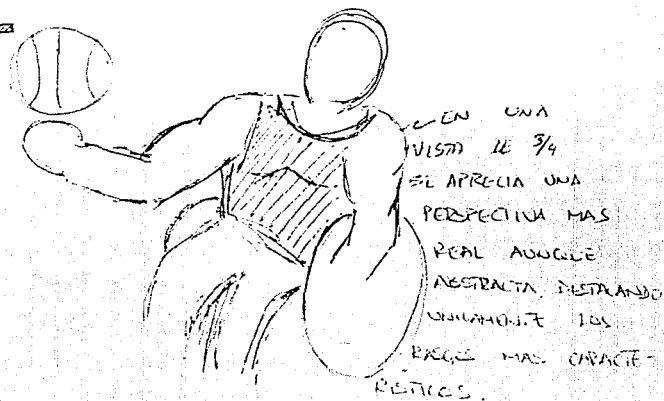 EN UNA
VISTA DE 3/4
SE APRECIA UNA
PERSPECTIVA MAS
REAL AUNQUE
ABSTRACTA, DESTACANDO
UNICAMENTE LOS
RASGOS MAS CARACTE-
RISTICOS.